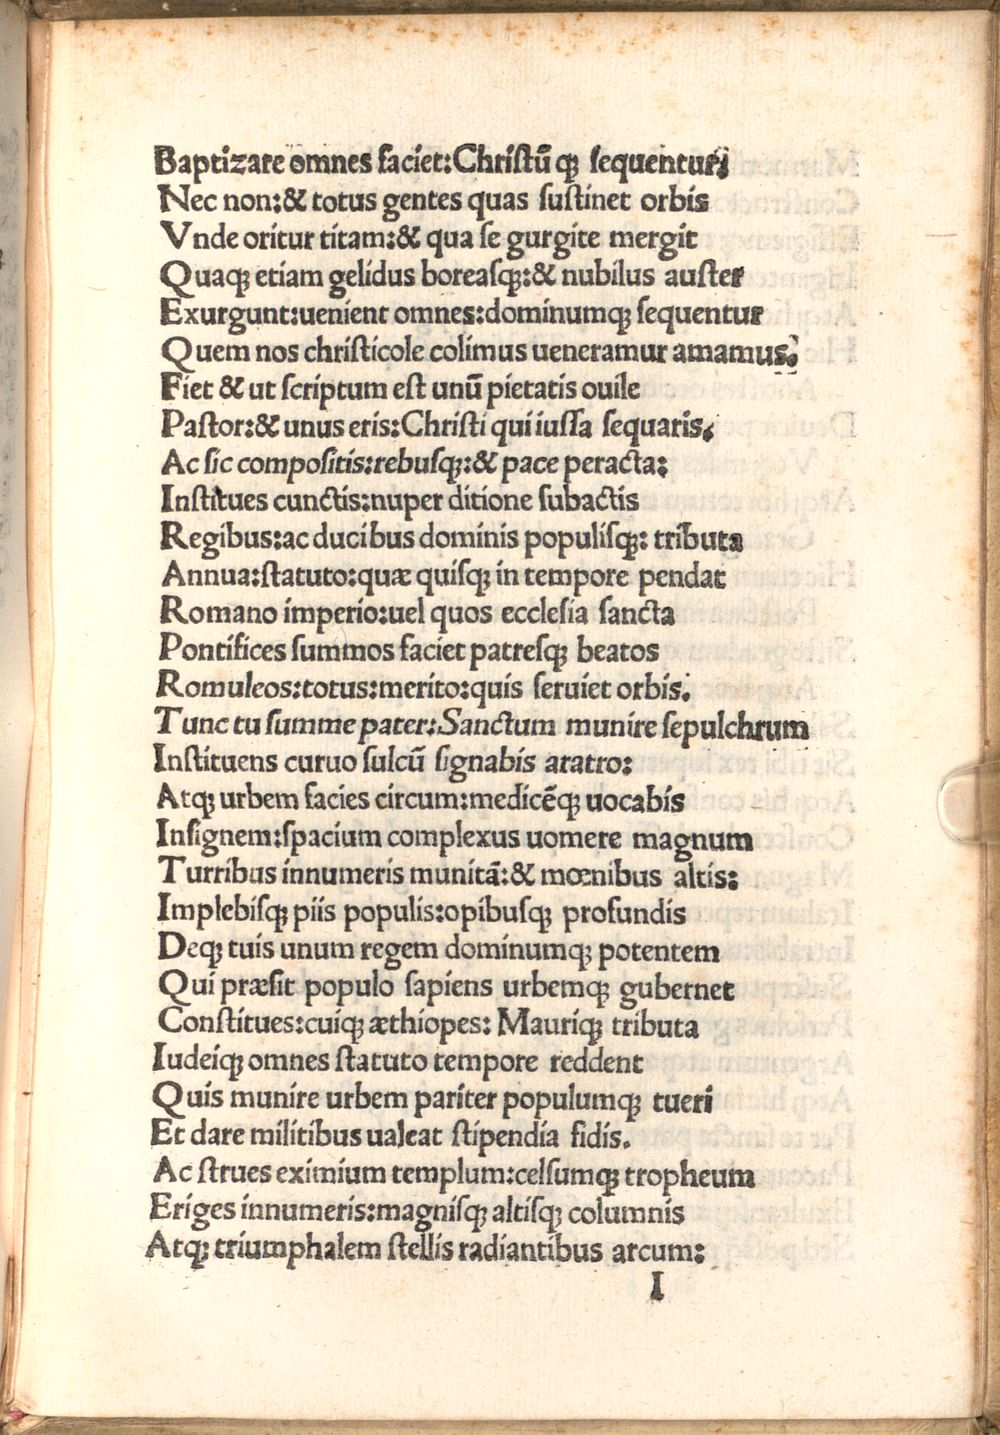 Baptizare omnes faciet:Chriſtū qꝫ ſequentur;
Nec non:& totus gentes quas ſuſtinet orbis
Vnde oritur titam:& qua ſe gurgite mergit
Quaqꝫ etiam gelidus boreaſqꝫ:& nubilus auſter
Exurgunt:uenient omnes:dominumqꝫ ſequentur
Quem nos chriſticole colimus ueneramur amamus.
Fiet & ut ſcriptum eſt unū pietatis ouile
Paſtor:& unus eris:Chriſti qui iuſſa ſequaris.
Ac ſic compoſitis:rebuſqꝫ:& pace peracta:
Inſtitues cunctis:nuper ditione ſubactis
Regibus:ac ducibus dominis populiſqꝫ: tributa
Annua:ſtatuto:quæ quiſqꝫ in tempore pendat
Romano imperio:uel quos eccleſia ſancta
Pontifices ſummos faciet patreſqꝫ beatos
Romuleos:totus:merito:quis ſeruiet orbis.
Tunc tu ſumme pater:Sanctum munire ſepulchrum
Inſtituens curuo ſulcū ſignabis aratro:
Atqꝫ urbem facies circum:medicēqꝫ uocabis
Inſignem:ſpacium complexus uomere magnum
Turribus innumeris munitā:& mœnibus altis:
Implebiſqꝫ piis populis:opibuſqꝫ profundis
Deqꝫ tuis unum regem dominumqꝫ potentem
Qui præſit populo ſapiens urbemqꝫ gubernet
Conſtitues:cuiqꝫ æthiopes: Mauriqꝫ tributa
Iudeiqꝫ omnes ſtatuto tempore reddent
Quis munire urbem pariter populumqꝫ tueri
Et dare militibus ualeat ſtipendia fidis.
Ac ſtrues eximium templum:celſumqꝫ tropheum
Eriges innumeris:magniſqꝫ altiſqꝫ columnis
Atqꝫ triumphalem ſtellis radiantibus arcum:
I